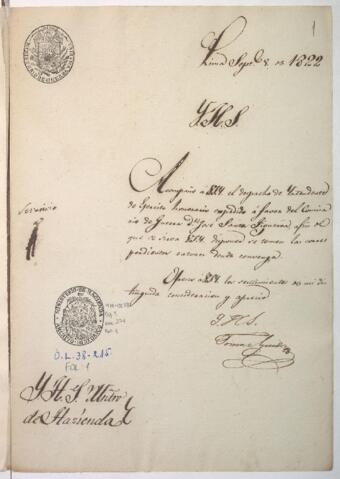 1
Lima Sepe. 8. de 1822
Y. H. S.
Acompaño à VSY. el despacho de Yntendente
de Egército honorario expedido à favor del Comisa-
rio de Guerra dn. José Santa Figueroa, afin de
que se sirva VSY. disponer se tomen las razones
pendientes donde convenga.
Ofrezco à VSY. los sentimientos de mi dis-
tinguida consideracion y aprecio
Y. H. S.
Tomas Guido
MINISTERIO DE HACIENDA
O.L. 38-215
FOL 1
Y. H. S. Mntro.
de Hazienda